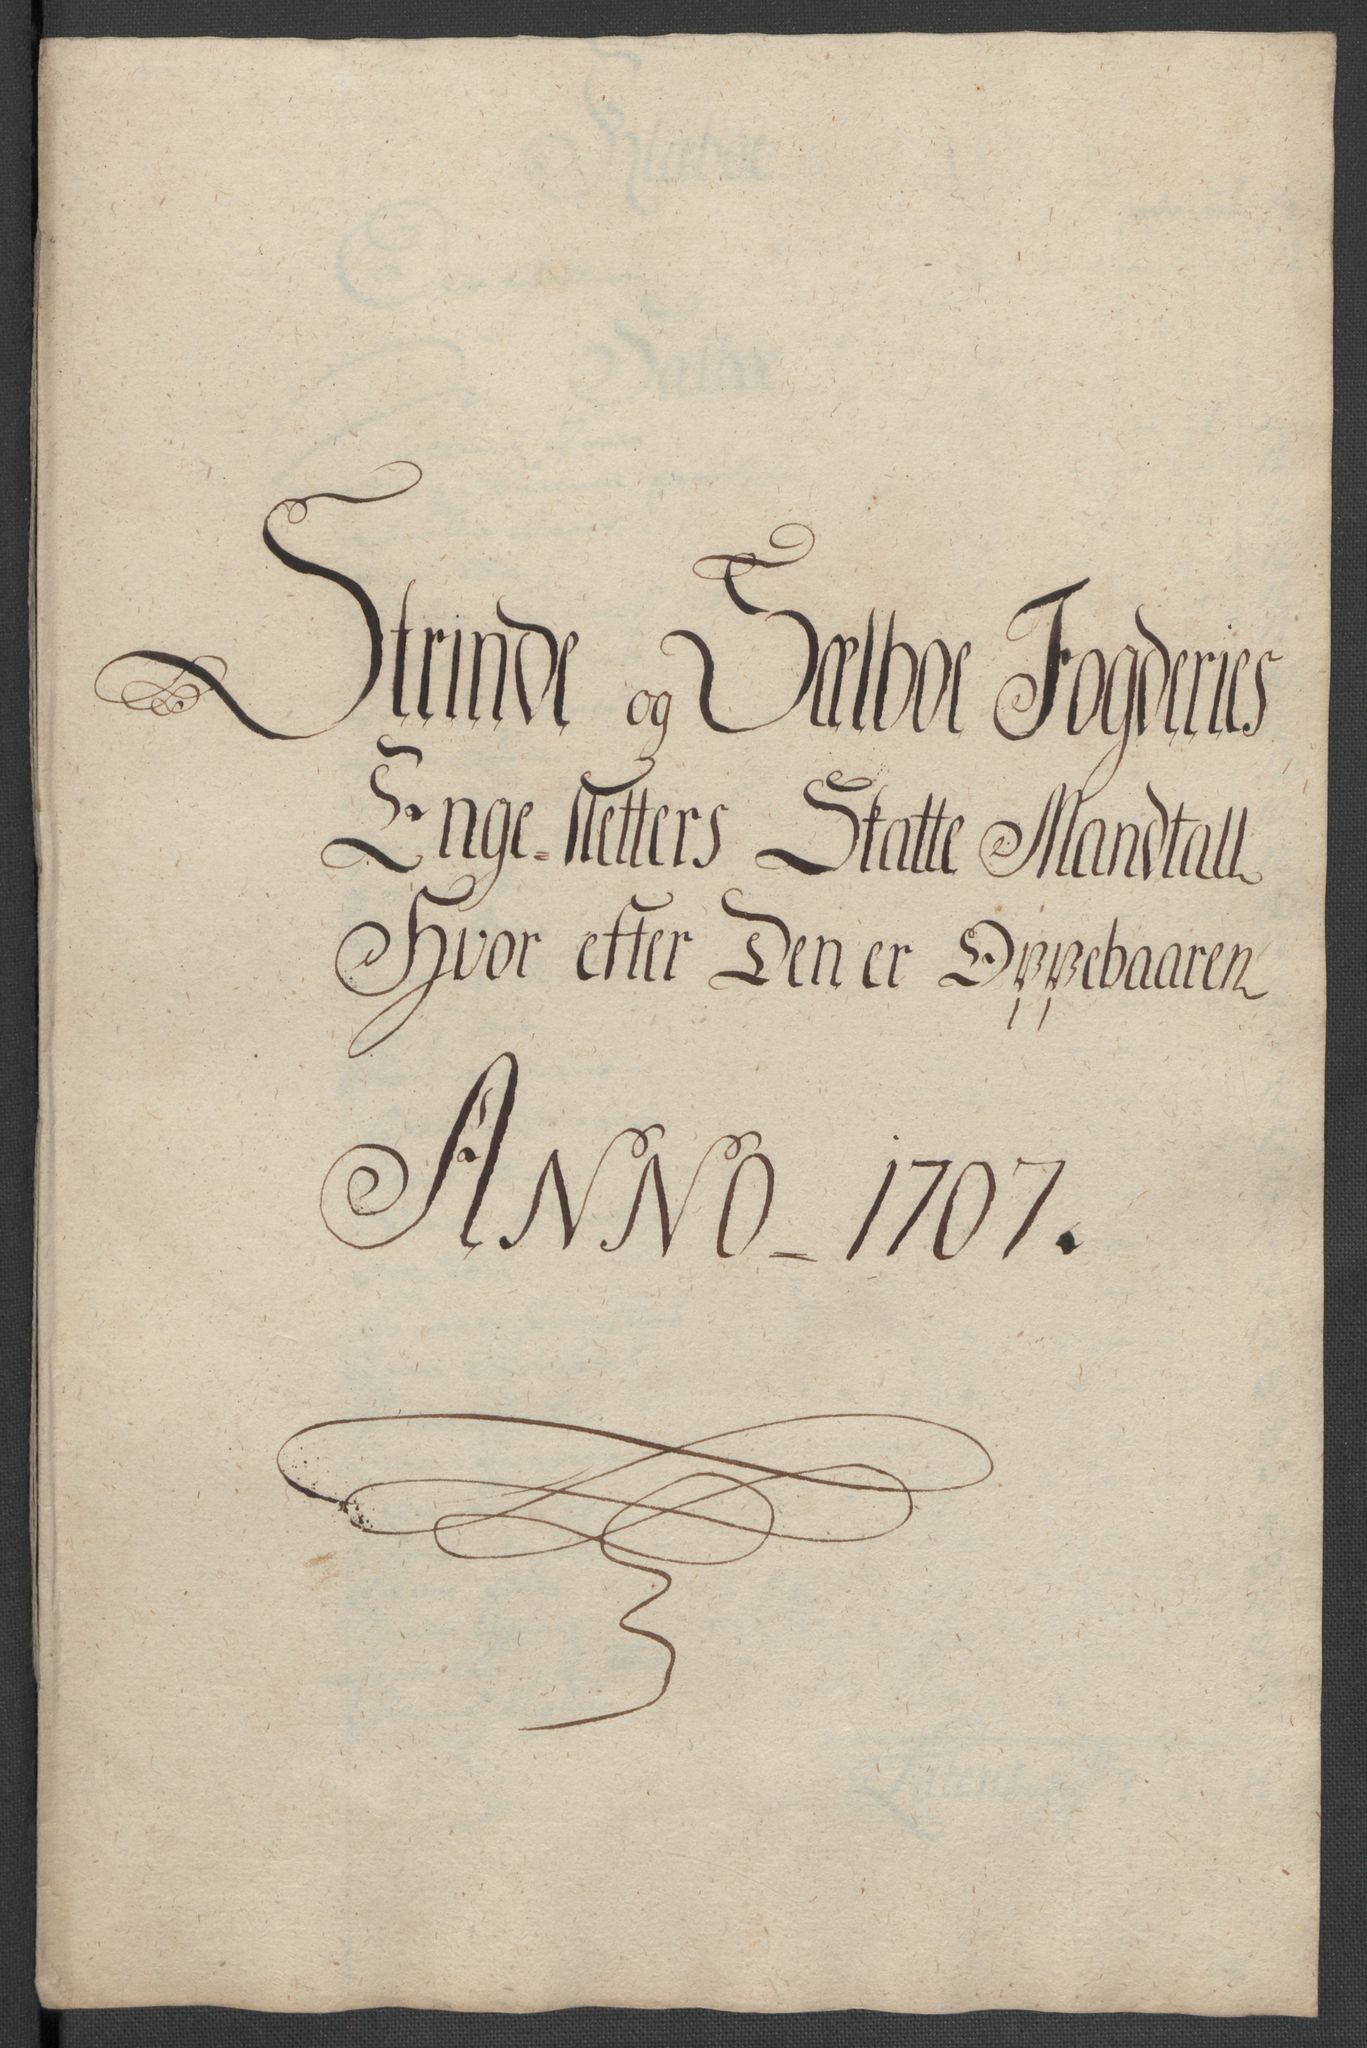 Strinde og Sælboe Fogderies
Enge-sletters Skatte Mandtall
Hvor efter Den er Oppebaaren
ANNO - 1707.